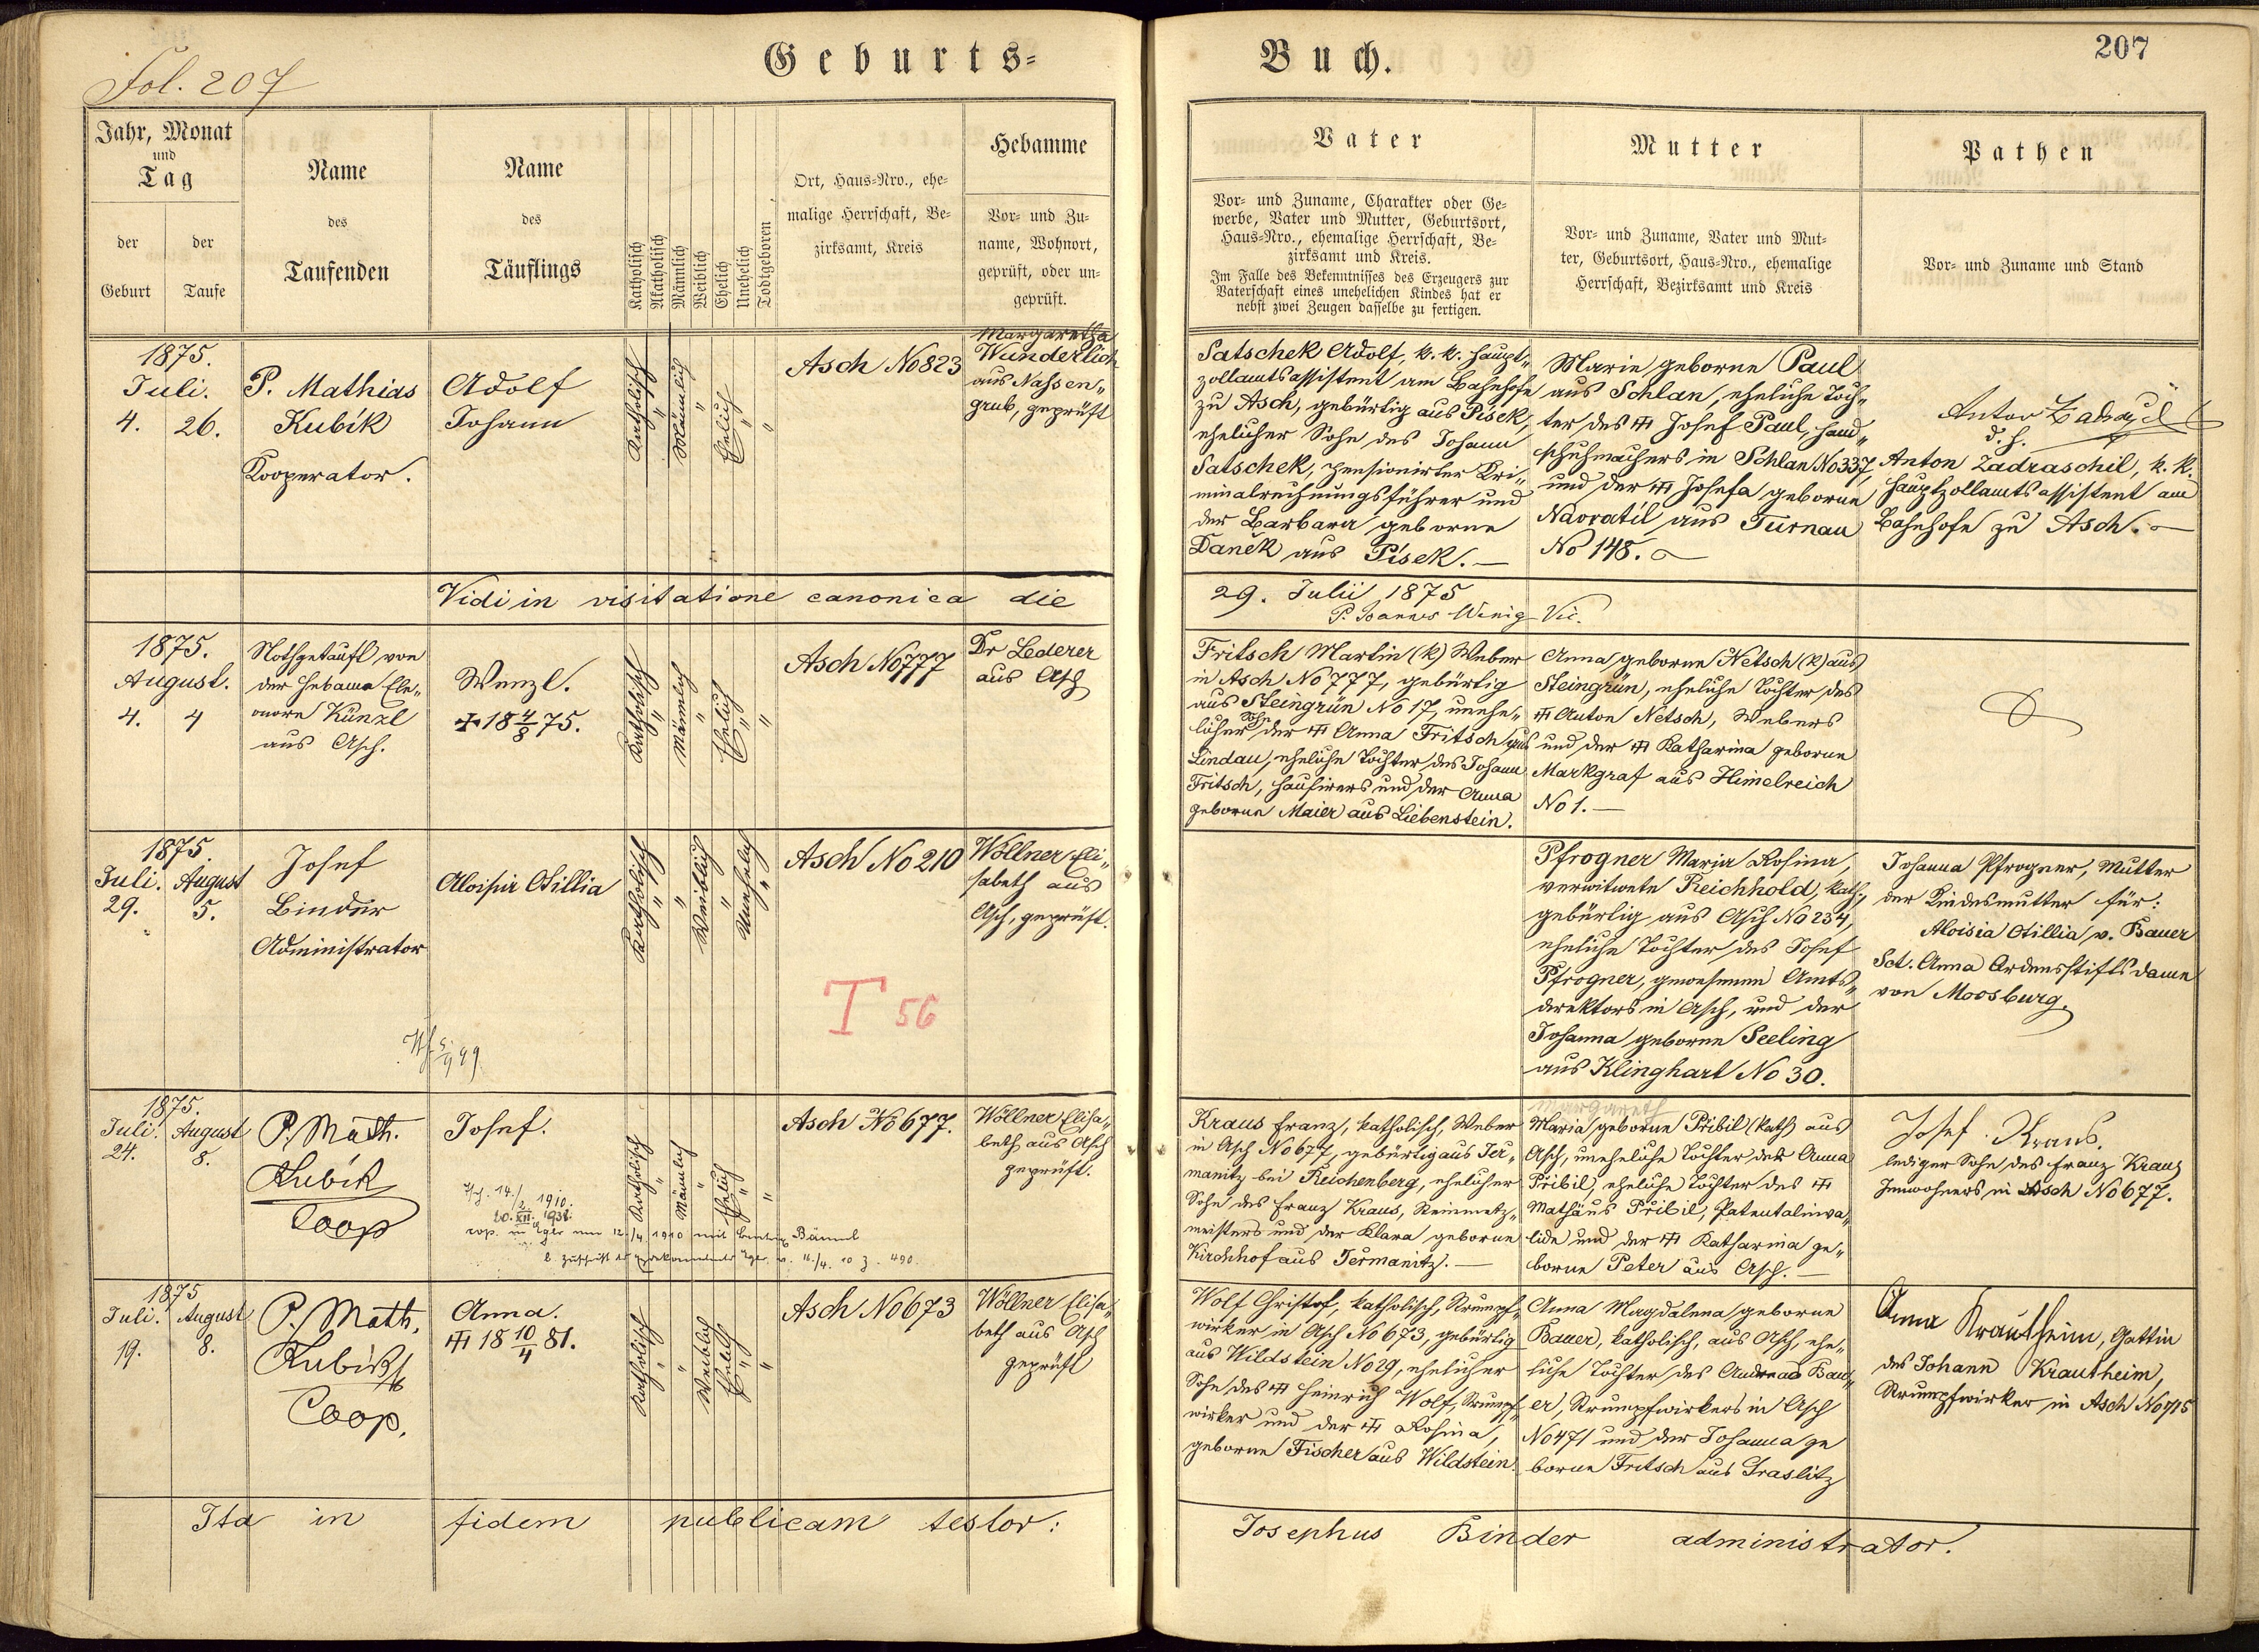 Fol. 207
Geburts=
Buch.
207
Jahr, Monat
und
Tag
der
Geburt
der
Taufe
Name
des
Taufenden
Name
des
Täuflings
Katholisch
Akatholisch
Männlich
Weiblich
Ehelich
Unehelich
Todtgeboren
Ort, Haus=Nro., ehe=
malige Herrschaft, Be=
zirksamt, Kreis
Hebamme
Vor= und Zu=
name, Wohnort,
geprüft, oder un=
geprüft.
Vater
Vor= und Zuname, Charakter oder Ge=
werbe, Vater und Mutter, Geburtsort,
Haus=Nro., ehemalige Herrschaft, Be=
zirksamt und Kreis.
Im Falle des Bekenntnisses des Erzeugers zur
Vaterschaft eines unehelichen Kindes hat er
nebst zwei Zeugen dasselbe zu fertigen.
Mutter
Vor= und Zuname, Vater und Mut=
ter, Geburtsort, Haus=Nro., ehemalige
Herrschaft, Bezirksamt und Kreis
Pathen
Vor= und Zuname und Stand
1875.
Juli.
4. 26.
P. Mathias
Kubík
Kooperator.
Adolf
Johann
Katholisch
Männlich
Ehelich
Asch No 823
Margaretha
Wunderlich
aus Nassen„
grub, geprüft
Satschek Adolf, k. k. Haupt„
zollamtsassistent am Bahnhofe
zu Asch, gebürtig aus Pisek,
ehelicher Sohn des Johann
Satschek, pensionirter Kri„
minalrechnungsführer und
der Barbara geborne
Daněk aus Písek. —
Marie geborne Paul
aus Schlan, eheliche Toch„
ter des Josef Paul, Hand„
schuhmachers in Schlan No 337,
und der Josefa geborne
Navratíl aus Turnau
No 148.
Anton
d. h.
Anton Zadraschil, k. k.
Hauptzollamtsassistent am
Bahnhofe zu Asch. —
Vidi in visitatione canonica die
29. Julii 1875
P. Joannes Wenig Vic.
1875.
August.
4. 4
Nothgetauft von
der Hebame Ele„
onore Künzl
aus Asch.
Wenzl.
✠ 18 4/8 75.
Katholisch
Männlich
Ehelich
Asch No 777
Dr Lederer
aus Asch
Fritsch Martin (k) Weber
in Asch No 777, gebürtig
aus Steingrün No 17, unehe„
licher Sohn der Anna Fritsch aus
Lindau, eheliche Tochter des Johann
Fritsch, Hausirers und der Anna
geborne Maier aus Liebenstein.
Anna geborne Netsch (k) aus
Steingrün, eheliche Tochter des
Anton Netsch, Webers
und der Katharina geborne
Markgraf aus Himelreich
No 1. —
1875.
Juli. August
29. 5.
Josef
Binder
Administrator
Aloisia Otillia
Katholisch
Weiblich
Unehelich
Asch No 210
Wöllner Eli„
sabeth aus
Asch, geprüft.
T 56
Pfrogner Maria Rosina,
verwitwete Reichhold, kath.,
gebürtig aus Asch No 234,
eheliche Tochter des Josef
Pfrogner, gewesenen Amts„
direktors in Asch, und der
Johanna geborne Seeling
aus Klinghart No 30.
Johanna Pfrogner, Mutter
der Kindesmutter für:
Aloisia Otillia v. Bauer
Sct. Anna Ordensstiftsdame
von Moosburg.
1875.
Juli. August
24. 8.
P. Math.
Kubík
Coop
Josef.
14./2. 1910.
20. XII. 1938.
cop. in Eger am 12./4. 1910 mit Bäuml
Katholisch
Männlich
Ehelich
Asch No 677.
Wöllner Elisa„
beth aus Asch
geprüft.
Kraus Franz, katholisch, Weber
in Asch No 677, gebürtig aus Jer„
manitz bei Reichenberg, ehelicher
Sohn des Franz Kraus, Steinmetz„
meisters und der Klara geborne
Kirchhof aus Jermanitz. —
Margareth
Maria geborne Pribil (kath) aus
Asch, uneheliche Tochter der Anna
Přibil, eheliche Tochter des
Mathäus Přibil, Patentalinva„
lide und der Katharina ge„
borne Peter aus Asch. —
Josef Kraus.
lediger Sohn des Franz Kraus
Inwohners in Asch No 677.
1875
Juli. August
19. 8.
P. Math.
Kubík
Coop.
Anna.
18 10/4 81.
Katholisch
Weiblich
Ehelich
Asch No 673
Wöllner Elisa„
beth aus Asch
geprüft
Wolf Christof, katholisch, Strumpf„
wirker in Asch No 673, gebürtig
aus Wildstein No 29, ehelicher
Sohn des Heinrich Wolf, Strumpf„
wirker und der Rosina,
geborne Fischer aus Wildstein.
Anna Magdalena geborne
Bauer, katholisch, aus Asch, ehe„
liche Tochter des Andreas Bau„
er, Strumpfwirkers in Asch
No 471 und der Johanna ge
borne Fritsch aus Graslitz
Anna Krautheim, Gattin
des Johann Krautheim,
Strumpfwirker in Asch No 715
Ita in fidem publicam testor:
Josephus Binder administrator.